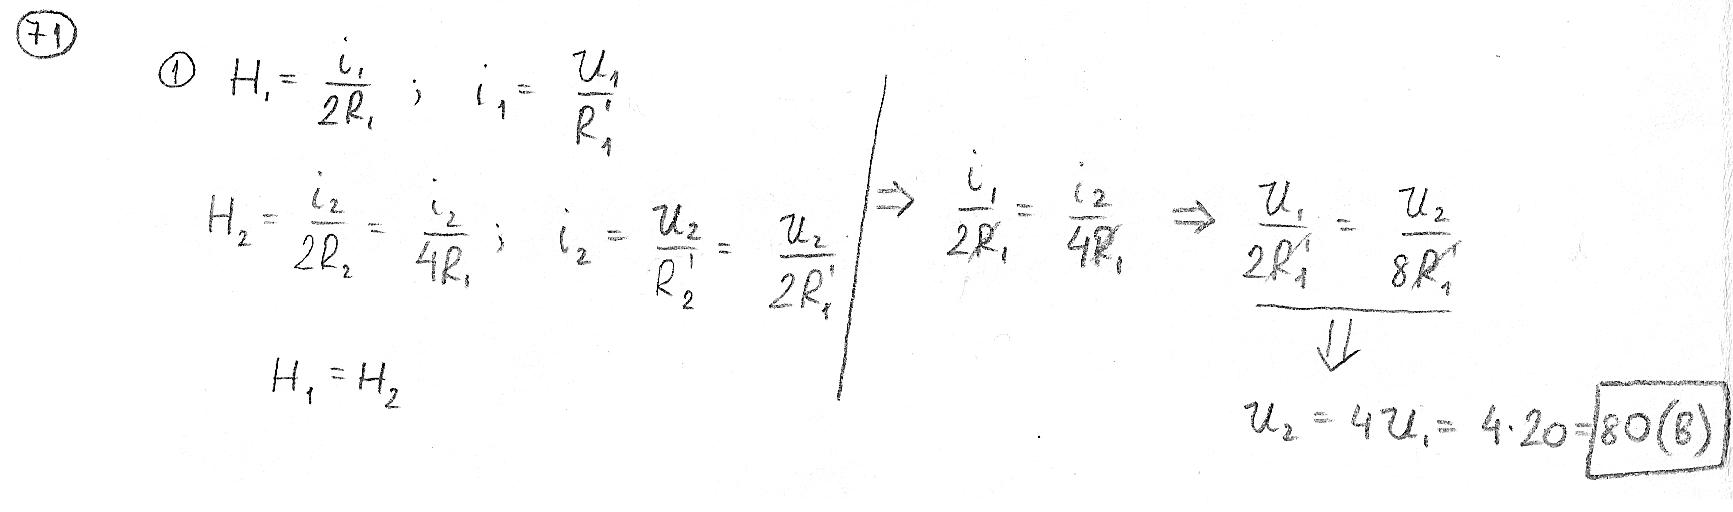 71
① H₁ = i₁/2R₁ ; i₁ = U₁/R₁'
H₂ = i₂/2R₂ = i₂/4R₁ ; i₂ = U₂/R₂' = U₂/2R₁' ⇒ i₁/2R₁ = i₂/4R₁ ⇒ U₁/2R₁' = U₂/8R₁'
⇓
H₁ = H₂
U₂ = 4U₁ = 4·20 = 80(В)